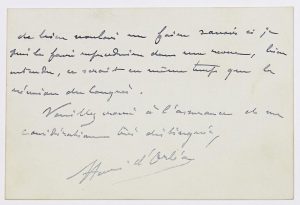 de bien vouloir me faire savoir si je
puis le faire reproduire dans une revue, bien
entendu, ce serait en même temps que la
réunion du Congrès.
Veuillez croire à l'assurance de ma
considération très distinguée,
Henri d'Orléans